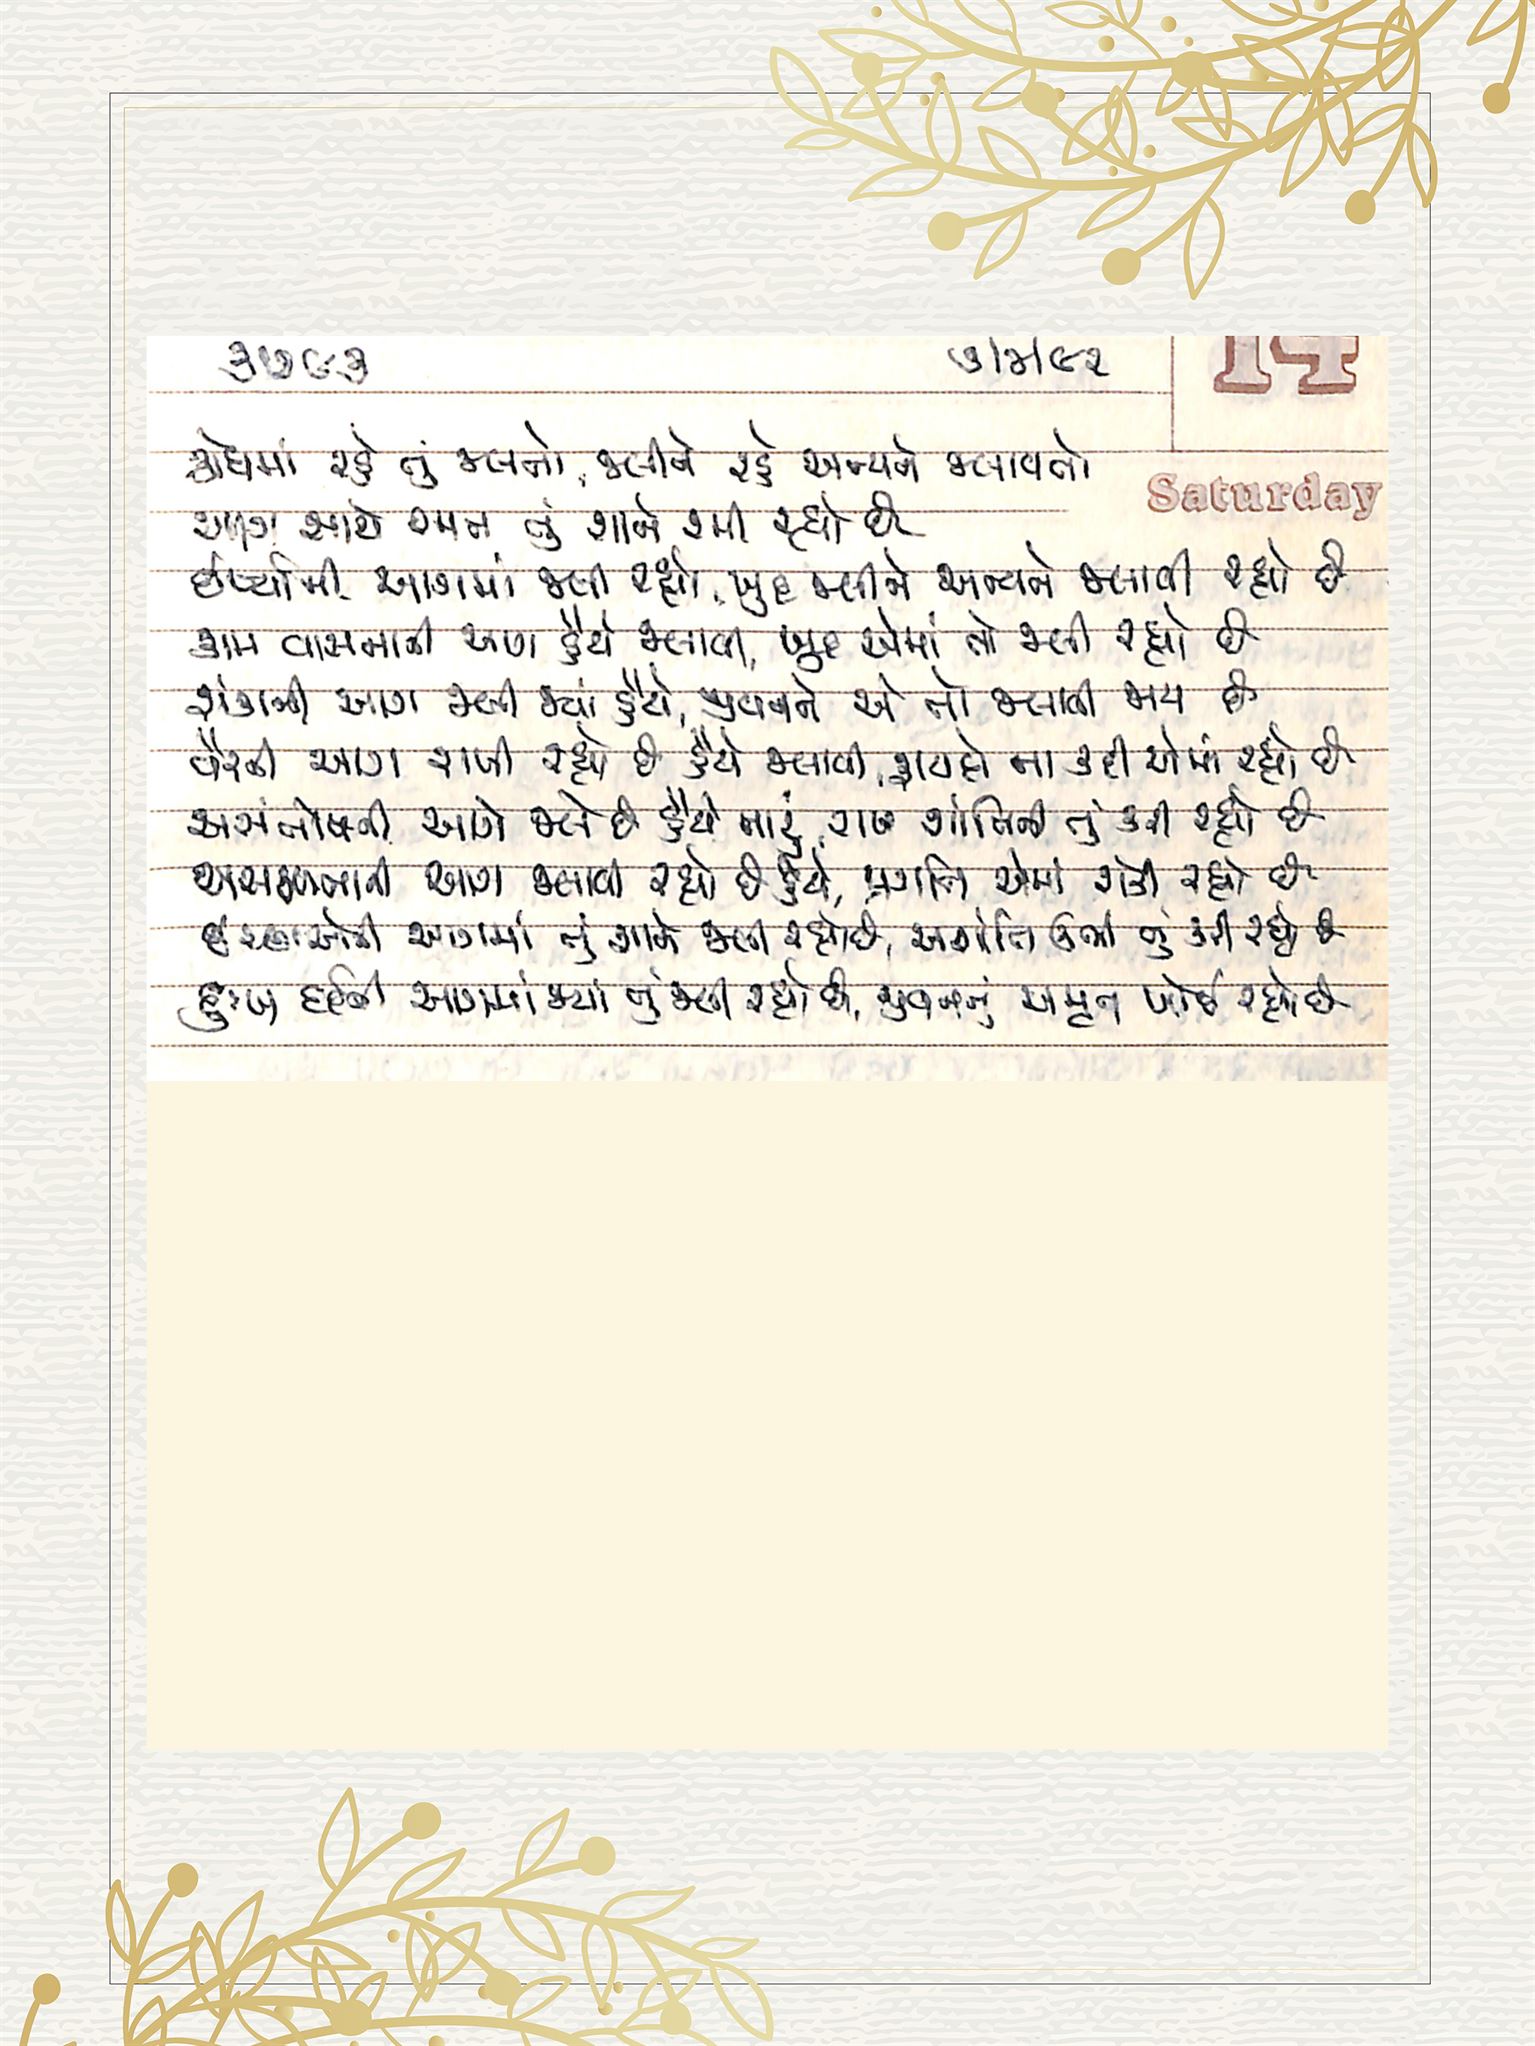 ૩૭૯૩
૭/૪/૯૨
14
ક્રોધમાં રહે તું જલતો, જલીને રહે અન્યને જલાવતો
Saturday
આગ સાથે રમત તું શાને રમી રહ્યો છે
ઈર્ષ્યાની આગમાં જલી રહ્યો, ખુદ જલીને અન્યને જલાવી રહ્યો છે
કામ વાસનાની આગ હૈયે જલાવી, ખુદ એમાં તો જલી રહ્યો છે
શંકાની આગ જલી જ્યાં હૈયે, જીવનને એ તો જલાવી જાય છે
વૈરની આગ રાખી રહ્યો છે હૈયે જલાવી, ફાયદો ના કદી એમાં રહ્યો છે
અસંતોષની આગે જલે છે હૈયું તારું, રાખ શાંતિની તું કરી રહ્યો છે
અસફળતાની આગ જલાવી રહ્યો છે હૈયે, પ્રગતિ એમાં રોકી રહ્યો છે
ઇચ્છાઓની આગમાં તું શાને જલી રહ્યો છે, અશાંતિ ઊભી તું કરી રહ્યો છે
દુઃખ દર્દની આગમાં જ્યાં તું જલી રહ્યો છે, જીવનનું અમૃત ખોઈ રહ્યો છે